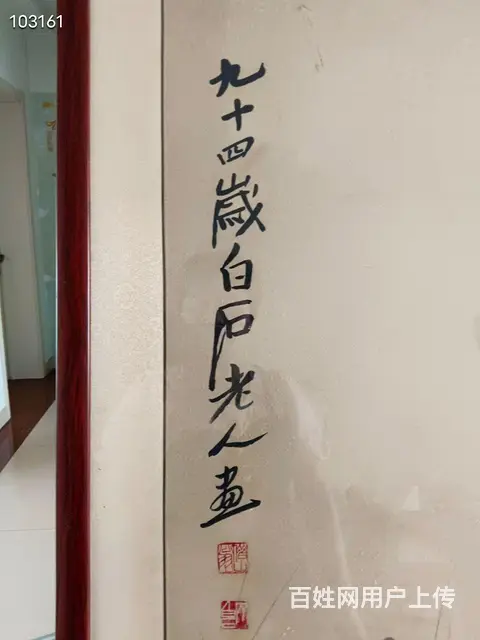 103161
九十四歲白石老人畫
百姓网用户上传